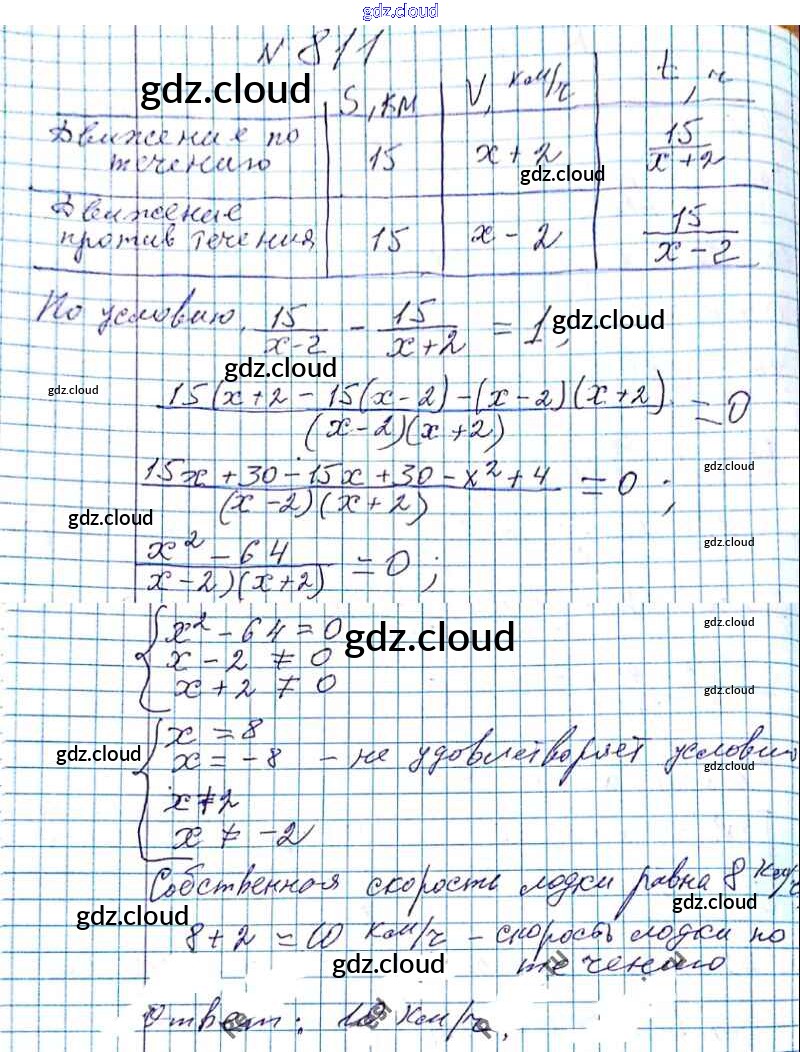 gdz.cloud
N 811
gdz.cloud
S, км V, км/ч t, ч
Движение по течению 15 x + 2 15/(x + 2)
gdz.cloud
Движение против течения 15 x - 2 15/(x - 2)
По условию. 15/(x-2) - 15/(x+2) = 1;
gdz.cloud
gdz.cloud
gdz.cloud
(15(x+2 - 15(x-2) - (x-2)(x+2))/((x-2)(x+2)) = 0
(15x + 30 - 15x + 30 - x² + 4)/((x-2)(x+2)) = 0;
gdz.cloud
gdz.cloud
gdz.cloud
(x² - 64)/(x-2)(x+2) = 0;
{ x² - 64 = 0
x - 2 ≠ 0
x + 2 ≠ 0
gdz.cloud
gdz.cloud
gdz.cloud
{ x = 8
x = -8 - не удовлетворяет условию
x ≠ 2
x ≠ -2
gdz.cloud
gdz.cloud
Собственная скорость лодки равна 8 км/ч
gdz.cloud
gdz.cloud
8 + 2 = 10 км/ч - скорость лодки по
течению
gdz.cloud
Ответ: 10 км/ч.